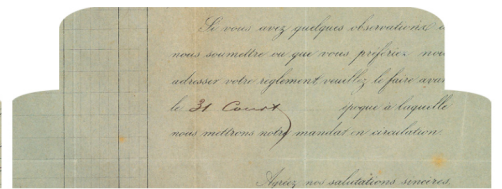 Si vous avez quelques observations
nous soumettre ou que vous préfériez nous
adresser votre règlement veuillez le faire avant
le 31 Court époque à laquelle
nous mettrons notre mandat en circulation.
Agréez nos salutations sincères.